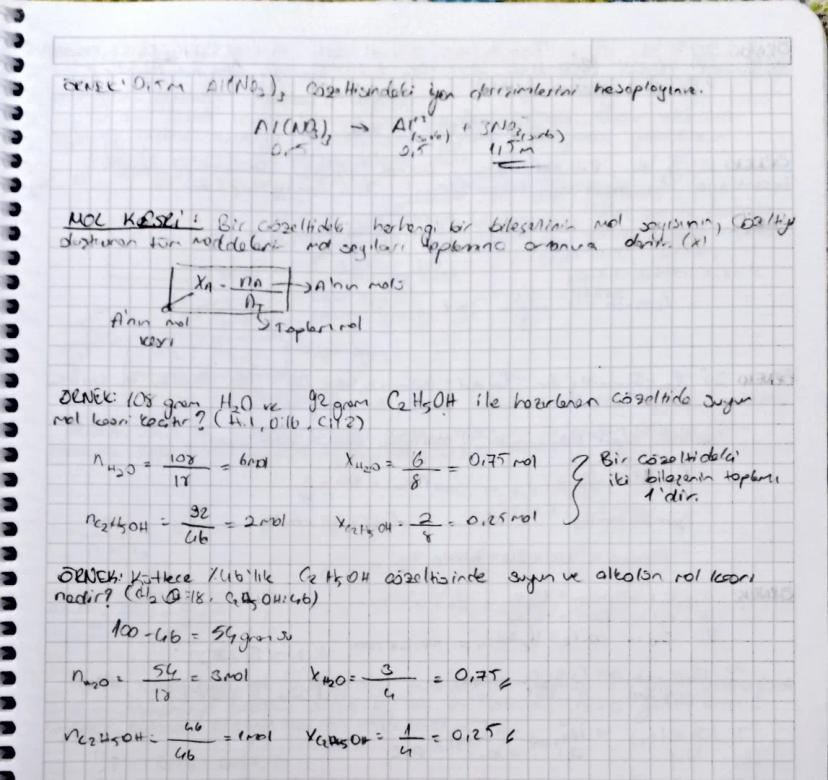 ÖRNEK: 0,5M Al(NO3)3 çözeltisindeki iyon derişimlerini hesaplayınız.
Al(NO3)3 → Al+3(suda) + 3NO3-(suda)
0,5 0,5 1,5M
MOL KESRİ: Bir çözeltideki herhangi bir bileşenin mol sayısının, çözeltiyi
oluşturan tüm maddelerin mol sayıları toplamına oranına denir. (X)
XA = nA / nT → A'nın molü
A'nın mol kesri
Toplam mol
ÖRNEK: 108 gram H2O ve 92 gram C2H5OH ile hazırlanan çözeltide suyun
mol kesri kaçtır? (H:1, O:16, C:12)
nH2O = 108/18 = 6mol XH2O = 6/8 = 0,75 mol
nC2H5OH = 92/46 = 2mol XC2H5OH = 2/8 = 0,25 mol
Bir çözeltideki
iki bileşenin toplamı
1'dir.
ÖRNEK: Kütlece %46'lık C2H5OH çözeltisinde suyun ve alkolün mol kesri
nedir? (H2O=18, C2H5OH:46)
100-46 = 54 gram su
nH2O = 54/18 = 3mol XH2O = 3/4 = 0,75
nC2H5OH = 46/46 = 1mol XC2H5OH = 1/4 = 0,25